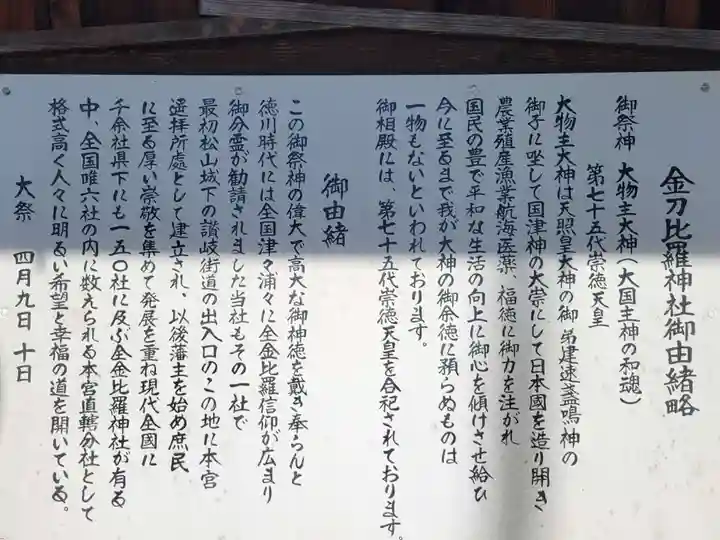 金刀比羅神社御由緒略
御祭神　大物主大神（大国主神の和魂）
第七十五代崇徳天皇
大物主大神は天照皇大神の御弟建速盞鳴神の
御子に坐して国津神の大崇にして日本國を造り開き
農業殖産漁業航海医薬、福徳に御力を注がれ
国民の豊で平和な生活の向上に御心を傾けさせ給ひ
今に至るまで我が大神の御余徳に預らぬものは
一物もないといわれております。
御相殿には、第七十五代崇徳天皇を合祀されております。
御由緒
この御祭神の偉大で高大な御神徳を戴き奉らんと
徳川時代には全国津々浦々に全金比羅信仰が広まり
御分霊が勧請されました当社もその一社で
最初松山城下の讃岐街道の出入口のこの地に本宮
遥拝所處として建立され、以後藩主を始め庶民
に至る厚い崇敬を集めて発展を重ね現代全國に
千余社県下にも一五〇社に及ぶ全金比羅神社が有る
中、全国唯六社の内に数えられる本宮直轄分社として
格式高く人々に明るい希望と幸福の道を開いている。
大祭　四月九日十日